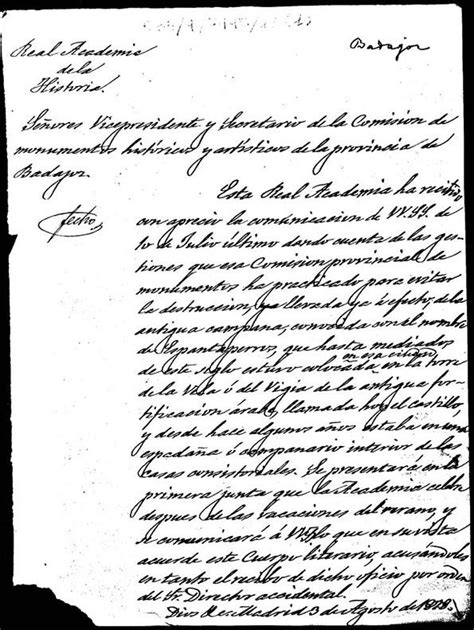 Real Academia
de la
Historia.
Badajoz
Señores Vicepresidente y Secretario de la Comision de
monumentos históricos y artísticos de la provincia de
Badajoz.
fecho
Esta Real Academia ha recibido
con aprecio la comunicacion de VV.SS. de
10 de Julio último dando cuenta de las ges
tiones que esa Comision provincial de
monumentos ha practicado para evitar
la destruccion, ya llevada ya á efecto, de la
antigua campana, conocida con el nombre
de Espantaperros, que hasta mediados
de este siglo estuvo colocada en esa ciudad en la torre
de la Vela ó del Vigia de la antigua for-
tificacion árabe, llamada hoy el castillo,
y desde hace algunos años estaba en una
espadaña ó campanario interior de las
casas consistoriales. Se presentará en la
primera junta que la Academia celebre
despues de las vacaciones del verano, y
se comunicará á VV.SS. lo que en su vista
acuerde este Cuerpo literario, acusándoles
en tanto el recibo de dicho oficio por orden
del Sr. Director accidental.
Dios &c. Madrid 3 de Agosto de 1878.